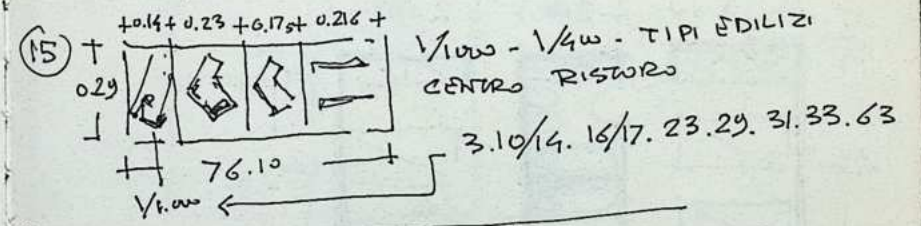 15
+0.14+ 0.23 +0.175+ 0.216 +
0.29
76.10
1/1000 - 1/400 - TIPI EDILIZI
CENTRO RISTORO
3.10/14. 16/17. 23.29. 31.33.63